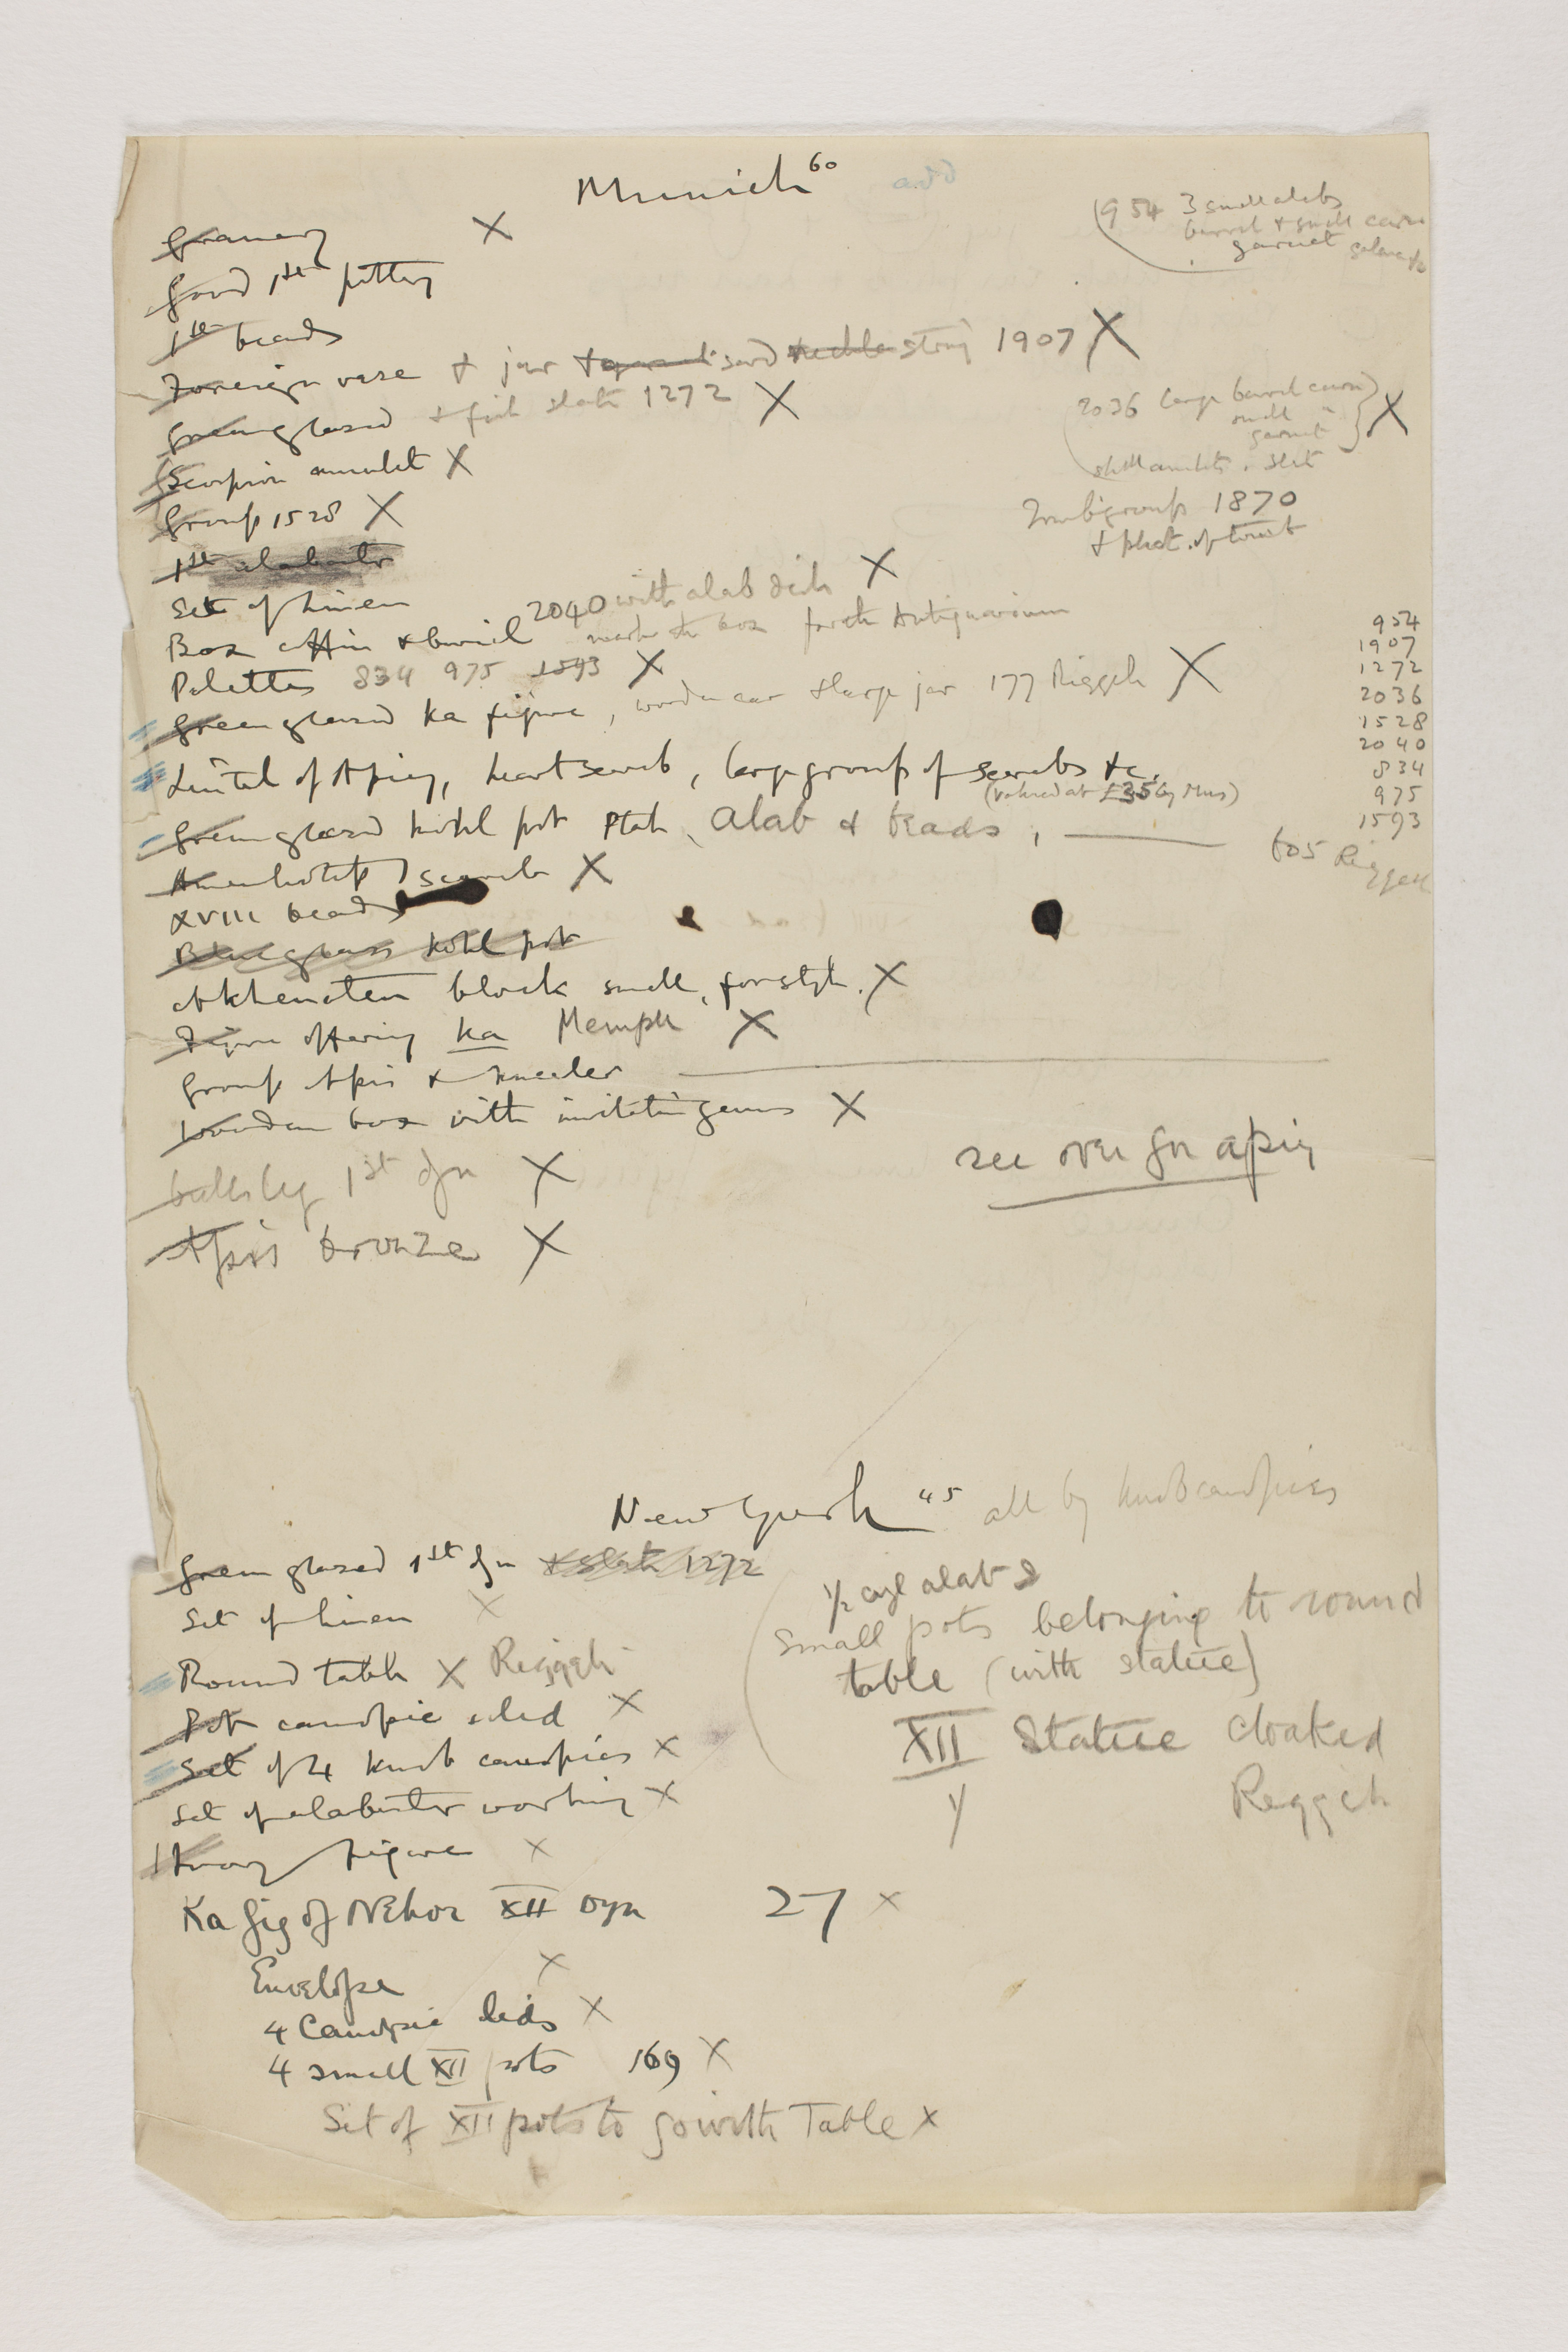 Munich 60
add
Granary X
954 3 small alabs
barrel & small carn
garnet
Good 1st pottery
1st beads
Foreign vase & jar sard string 1907 X
Green glazed & fish slate 1272 X
2036 large barrel carn
small "
garnet
X
shell amulets . slat
Scorpion amulet X
Group 1528 X
Tomb group 1870
& phot. of
1st alabaster
Set of linen
Box coffin & burial 2040 with alab dish X
box for the Antiquarium
Palettes 834 975 1593 X
Green glazed Ka figure, wooden & large jar 177 Riqqeh X
954
1907
1272
2036
1528
2040
834
975
1593
Lintel of Apiy, heart scarab, large group of scarabs &c.
(valued at £35 by Mus)
Green glazed kohl pot Ptah, alab & beads,
605 Riqqeh
Amenhotep I scarab X
XVIII beads
Blue glass kohl pot
Akhenaten block small, for style. X
Figure offering ka Memph X
Group Apis & kneeler
Wooden box with imitation gems X
see over for apiy
1st dyn X
Apis bronze X
New York 45 all by knob canopics
Green glazed 1st dyn & slate 1272
Set of linen X
½ cyl alab &
small pots belonging to round
table (with statue)
Round table X Riqqeh
Pot canopic & lid X
XII Statue cloaked
Reqqeh
Set of 4 knob canopics X
Set of alabaster working X
Ivory figure X
Ka fig of Nehor XII Dyn 27 X
Envelope X
4 Canopic lids X
4 small XII pots 169 X
Set of XII pots to go with Table X